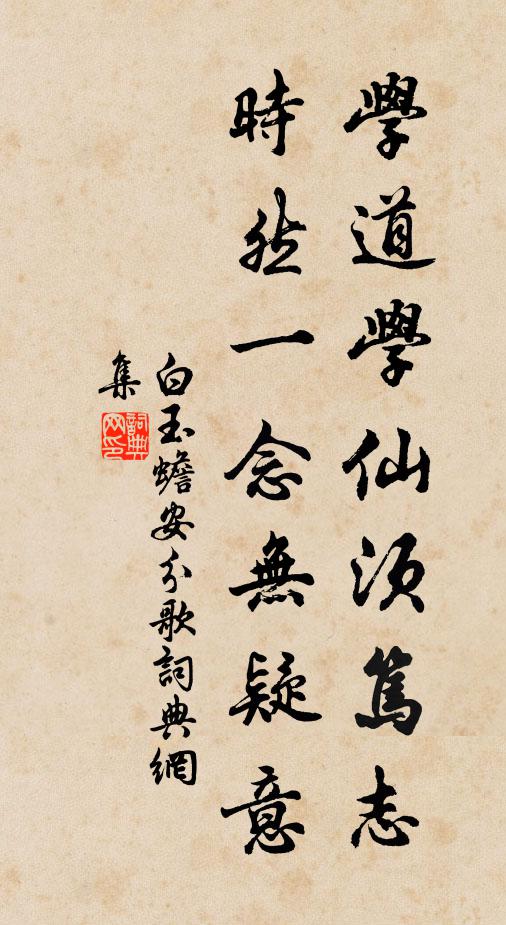 學道學仙須篤志
時然一念無疑意
白玉蟾安分歌詞典網
集
詞典網印